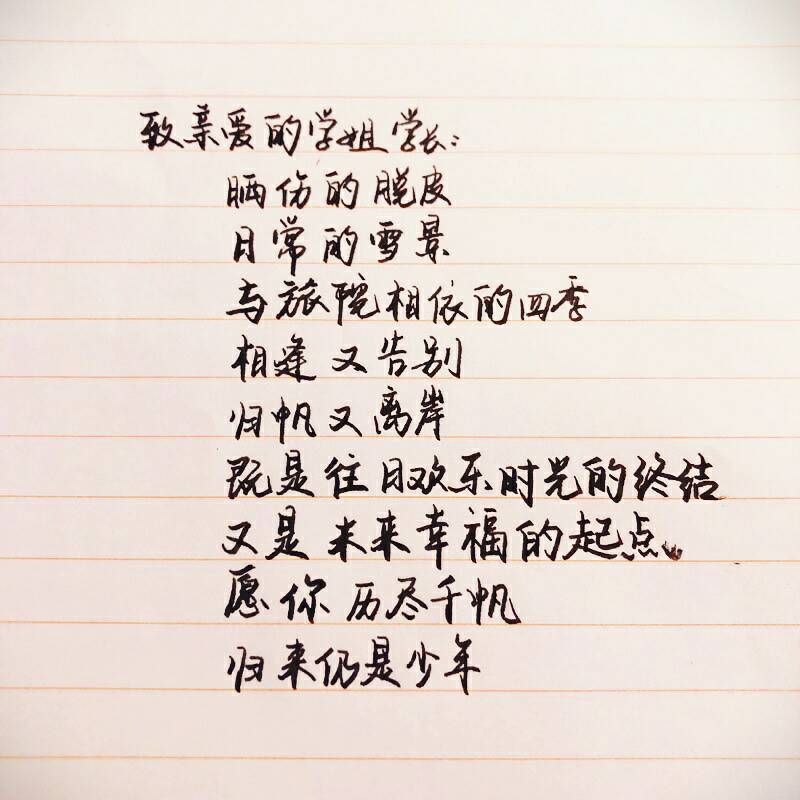 致亲爱的学姐学长:
晒伤的脱皮
日常的雪景
与旅院相依的四季
相逢又告别
归帆又离岸
既是往日欢乐时光的终结
又是未来幸福的起点。
愿你历尽千帆
归来仍是少年